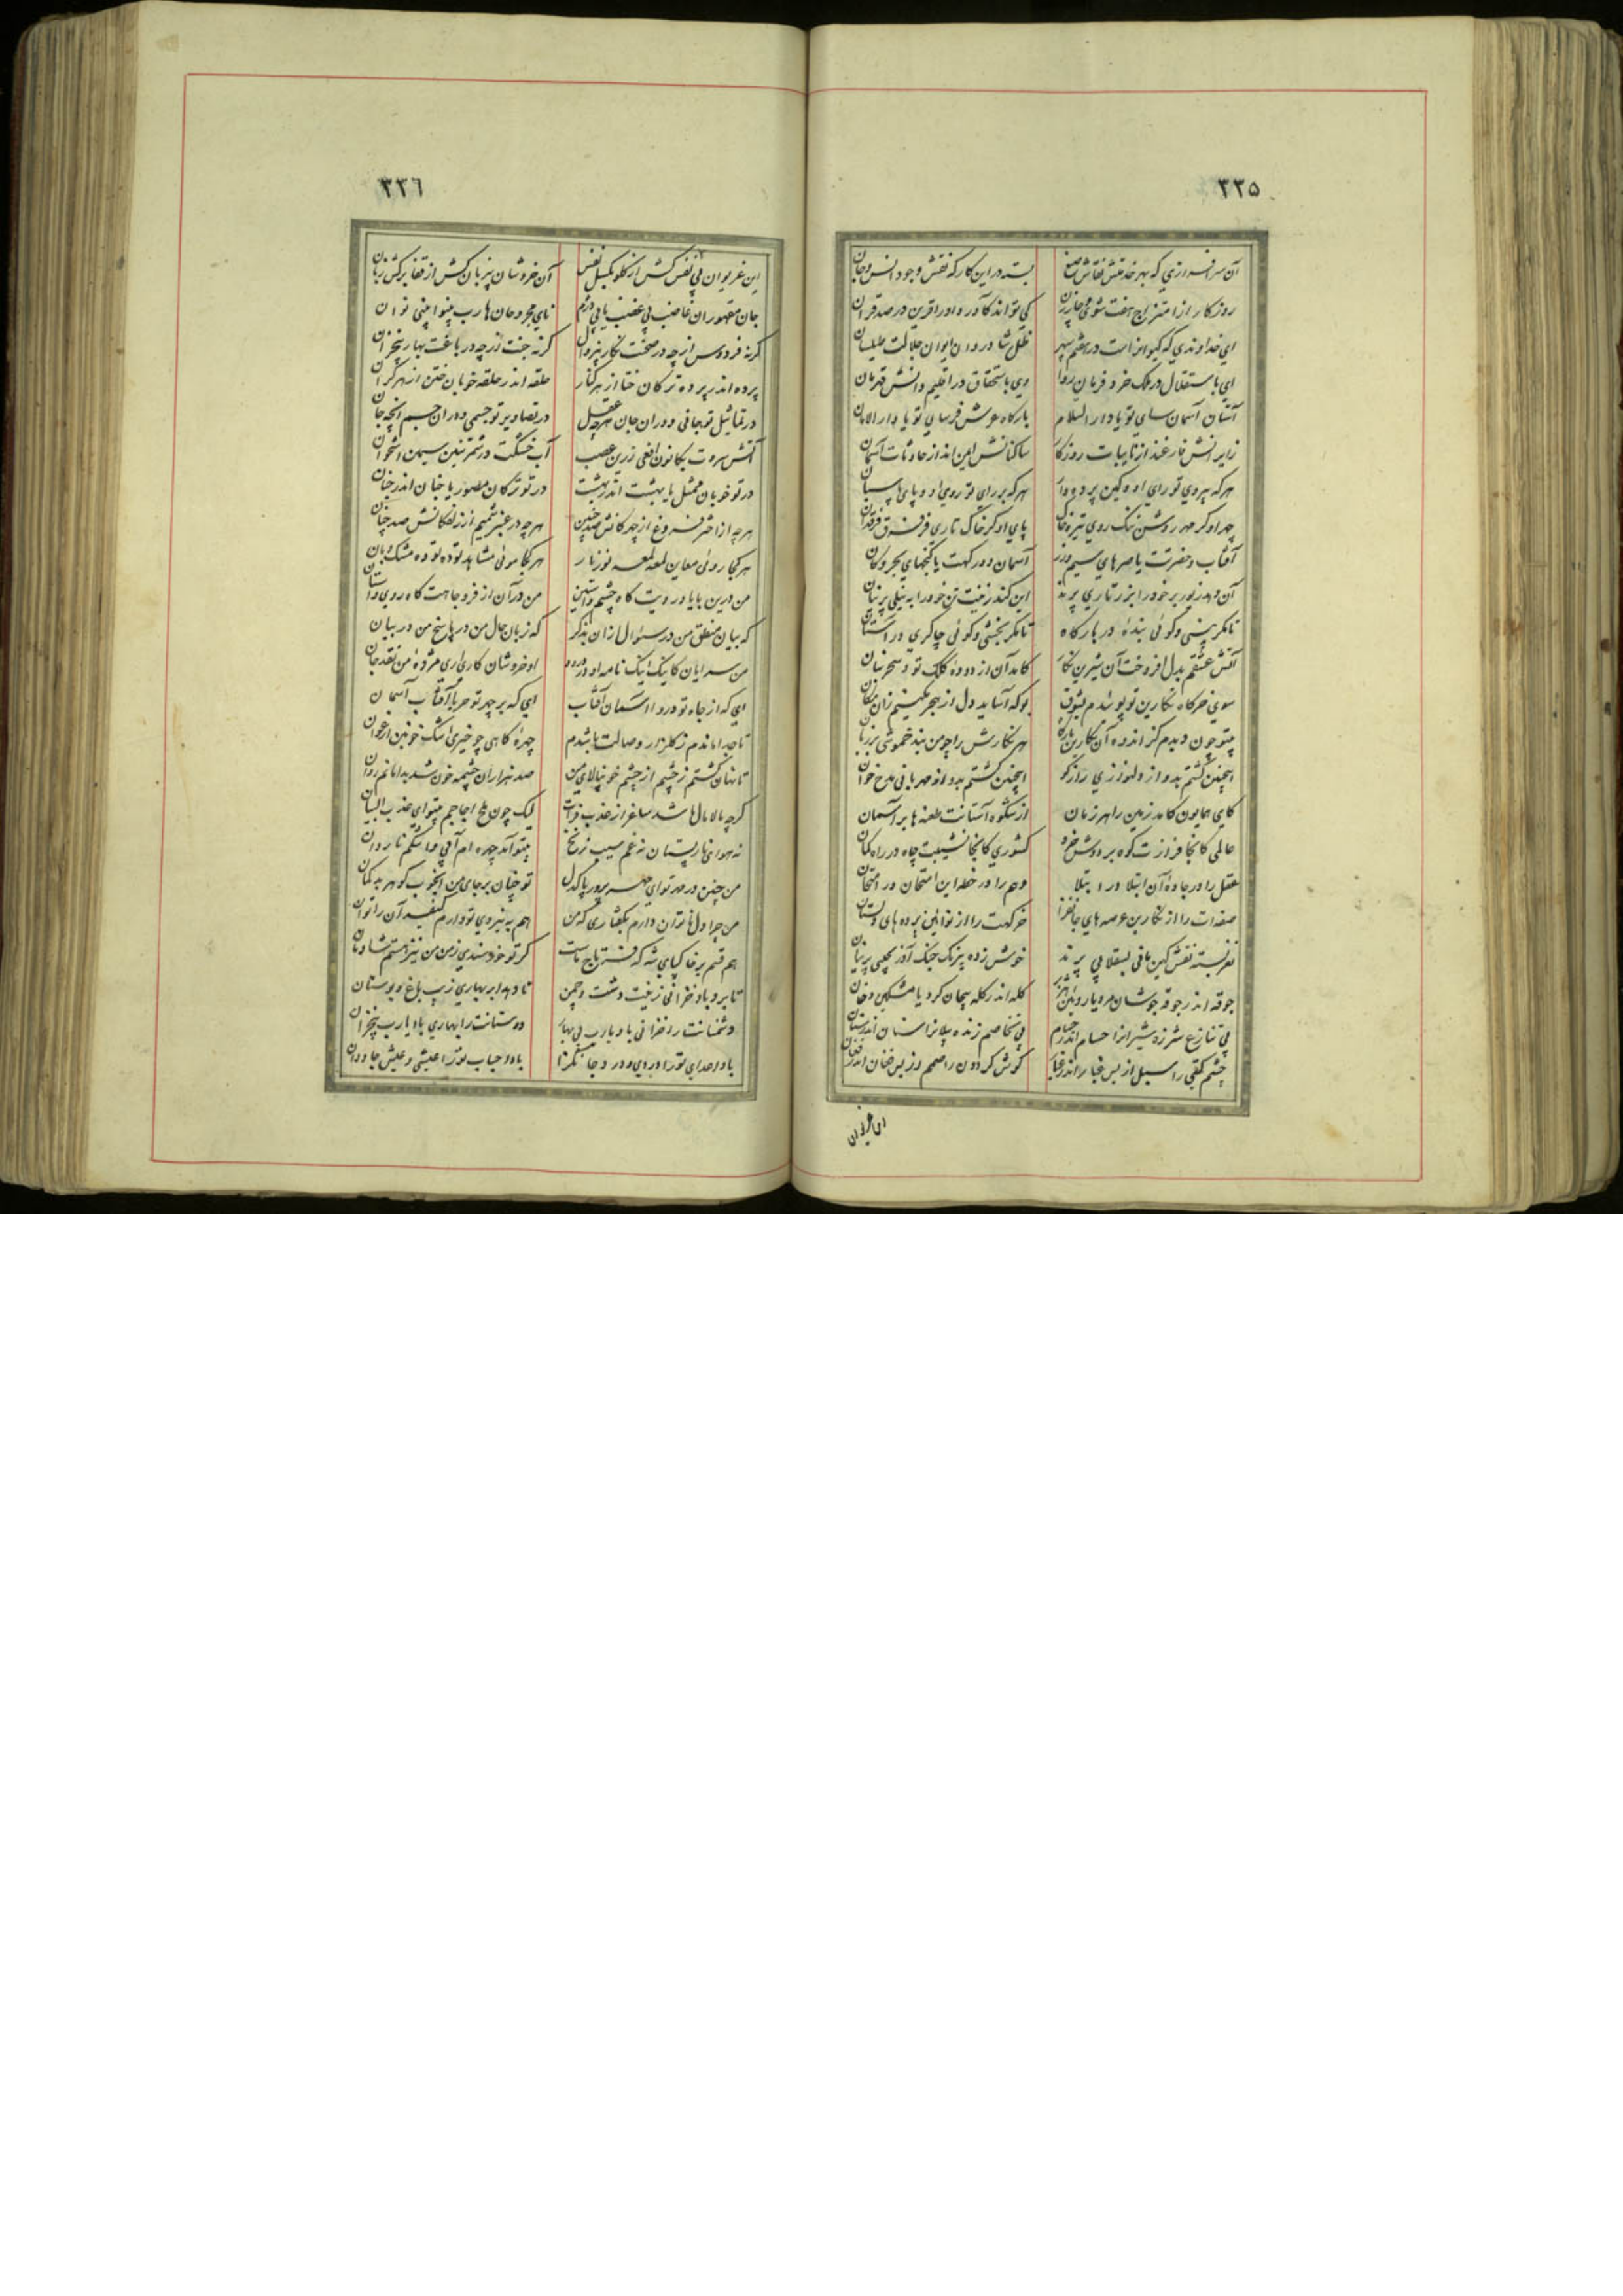 ٢٣٥
آن سرافرازی که بهر خدمتش نقاش صنع
بسته در این کارکه نقش وجود انس و جان
روزکار از امتزاج هفت شوی و چار زن
کی تواند کآورد او را قرین در صد قران
ای خداوندی که کیوانراست در هفتم سپهر
ظل شادروان ایوان جلالت طیلسان
ای باستقلال در ملک خرد فرمان روا
وی باستحقاق در اقلیم دانش قهرمان
آستان آسمان سای تو یا دار السلام
بارکاه عرش فرسای تو یا دار الامان
زایرانش فارغند از نایبات روزکار
ساکنانش ایمن اند از حادثات آسمان
هر که پیروی تو رای او و کین پر دود
هر که بر رای تو روی او و پای پاسبان
چهر او کر مهر روشن نیک روی تیره خاک
پای او کر خاک تاری فرق فرقدان
آفتاب و حضرتت یا صره‌های سیم و زر
آسمان و درکهت یا کنجهای بحر و کان
آن دهد زیور بر خود را بزرتاری پرند
این کند زینت تن خود را به نیلی پرنیان
تا مکر بینی و کوئی بندهٔ در بارکاه
تا مکر بخشی و کوئی چاکری در آستان
آتش عشقم بدل افروخت آن شیرین نکار
کامد آن از دودهٔ کلک تو و سحر بنان
سوی خرکاه نکارین تو پوئیدم بشوق
بو که آساید دل از هجر مکینم زان مکان
بیتو چون دیدم کز اندوه آن نکارین بارکاه
هر نکارش را چو من بند خموشی بر زبان
اینچنین کشتم بدو از دلنوازی رازکو
اینچنین کشتم بدو از مهربانی مدح خوان
کای همایون کامد زمین را هر زمان
از شکوه آستانت طعنه‌ها بر آسمان
عالمی کانجا فرازت کوه بر دوش خرد
کشوری کانجا نشیبت چاه در راه کمان
عقل را در جادهٔ آن ابتلا در ابتلا
وهم را در خطهٔ این امتحان در امتحان
صفه‌ات را از نکارین عرصه‌های جانفزا
خرکهت را از نوائین پرده‌های دلستان
نغز بسته نقش کین مانی بسقلابی پرند
خوش زده نیرنک جنک آذر بچینی پرنیان
جوقه اندر جوقه جوشان مرد یا روئین هژبر
کله اندر کله پیچان کرد یا مشکین دخان
بی تنازع شرزه شیرانرا حسام اندر حسام
بی تخاصم زنده پیلانرا سنان اندر سنان
چشم کیتی را سبل از بس غبار اندر غبار
کوش کردون را صمم از بس فغان اندر فغان
این غریوان
٢٣٦
این غریوان بی نفس کش از کلو بکسل نفس
آن خروشان بیزبان کش از قفا برکش زبان
جان مقهوران غاصب بی غضب یابی دژم
نای مجروحان هارب بینوا بینی نوان
کر نه فردوس از چه در صحنت نکار بیزوال
کر نه جنت از چه در باغت بهار بیخزان
پرده اندر پرده ترکان ختا از هر کنار
حلقه اندر حلقه خوبان ختن از هر کران
در تماثیل تو جانی دوران جان هر چه عقل
در تصاویر تو جسمی دوران جسم آنچه جان
آتش سروت بکانون افعی زرین عصب
آب خشکت در شمر تنین سیمین استخوان
در تو خوبان ممثل یا بهشت اندر بهشت
در تو ترکان مصور یا جنان اندر جنان
هر چه از اختر فروغ از چهرکانش صد چنین
هر چه در عنبر شمیم از زلفکانش صد چنان
هر کجا روئی معاین لمعه لمعه نور نار
هر کجا موئی مشاهد توده توده مشک و بان
من درین با یاد رویت کاه چشم و آستین
من در آن از فر و جاهت کاه روی و آستان
که بیان منطق من در سئوال از آن بذکر
که زبان حال من در پاسخ من در بیان
من سرایان کاینک اینک نامهٔ او در ورود
او خروشان کاری آری مژدهٔ من نقد جان
ای که از جاه تو در رو ا اسمان آفتاب
ای که بر چهر تو حربا آفتاب آسمان
تا جدا ماندم ز کلزار وصالت تا شدم
چهرهٔ کاهی چو خیری اشک خونین ارغوان
تا نهان کشتم ز چشم از چشم خونپالای من
صد هزاران چشمه خون شد بدامانم روان
کر چه مالامال باشد ساغر از عذب فرات
لیک چون ملح اجاجم بیتو ای عذب البیان
نه هوای نار پستان نه غم سیب زنخ
بیتو آمد چهره‌ام آبی و اشکم ناردان
من چنین در مهر تو ای مهر پرور پاکدل
تو چنان بر جای من اینخوب کوهر بد کمان
من چرا دل ناتوان دارم بکفتاری که من
هم به نیروی تو دارم کیفر آن را توان
هم قسم بر خاکپای شه که فرش تاج ماست
کر تو خورسندی ز من من نیز هستم شادمان
تا برد باد خزانی زینت دشت و چمن
تا دهد ابر بهاری زیب باغ و بوستان
دشمنانت را خزانی باد یا رب بی بهار
دوستانت را بهاری باد یا رب بیخزان
باد اعدای تو را دردی و درد جانکزا
باد احباب تو را عیشی و عیش جاودان